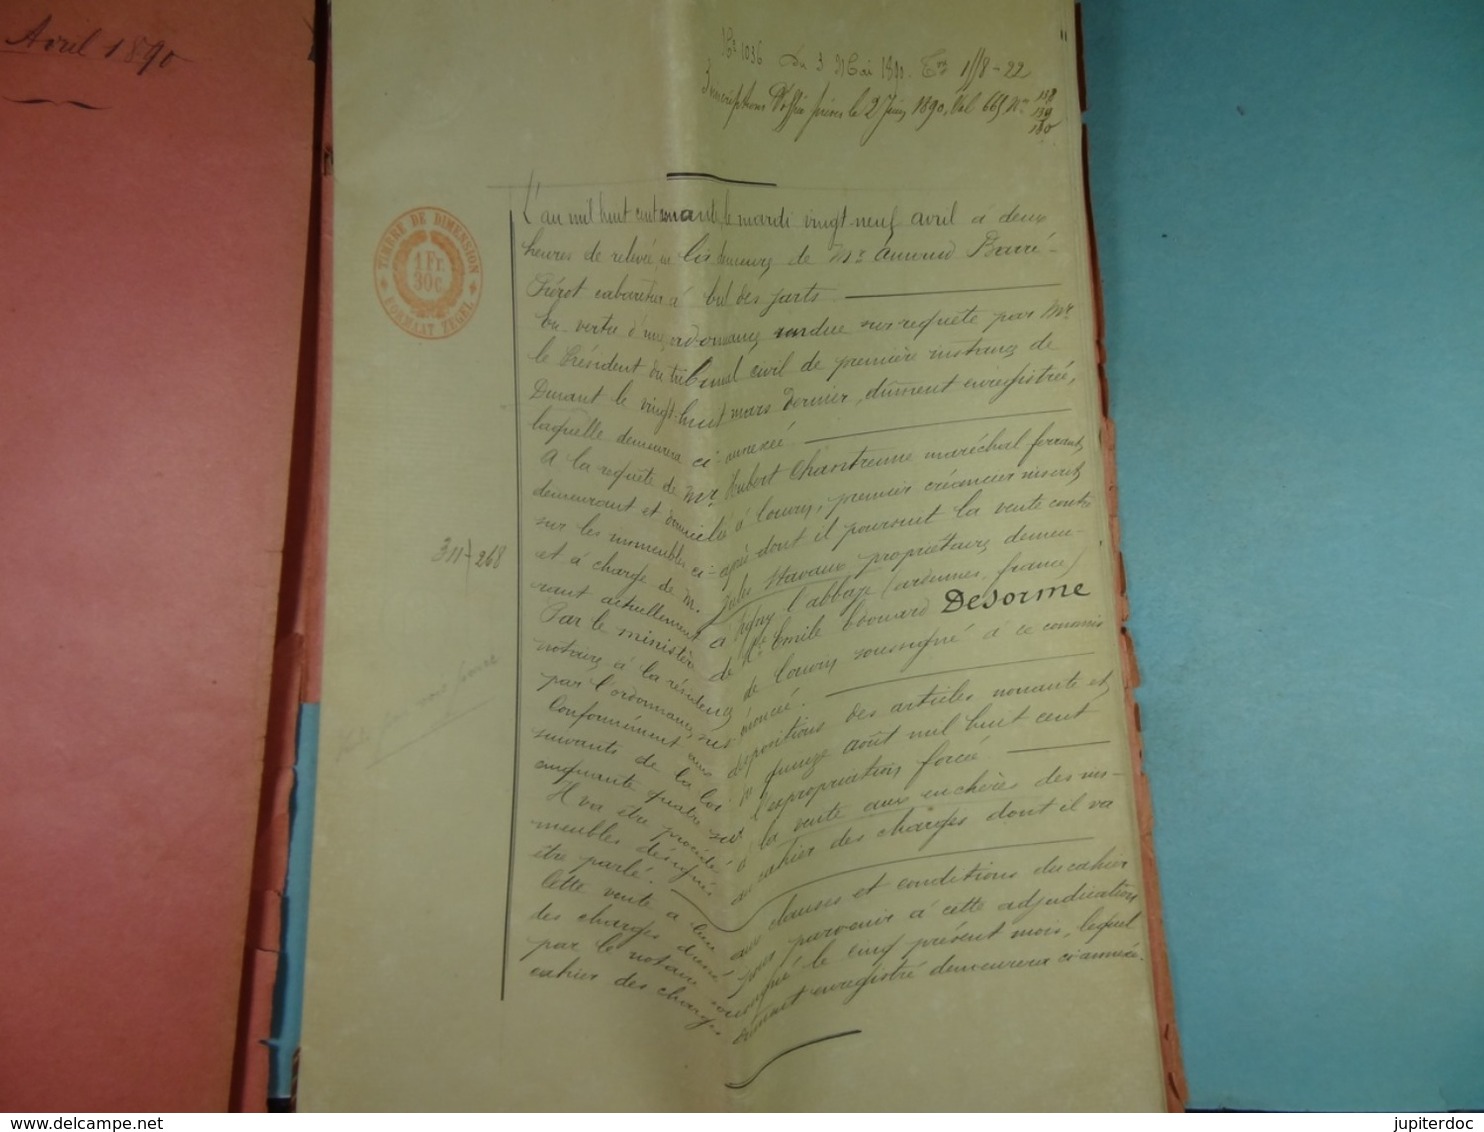 Avril 1890
N° 1036 Du 3 Mai 1890. 1//8-22
Inscriptions d'office prises le 2 Juin 1890, Vol 665 N°s 158
159
160
TIMBRE DE DIMENSION
1 Fr.
30c.
FORMAAT ZEGEL
L'an mil huit cent nonante, le mardi vingt-neuf avril à deux
heures de relevée en la demeure de Mr Amand Barré-
Piérot cabaretier à Cul des Sarts.
En vertu d'une ordonnance rendue sur requête par Mr
le Président du tribunal civil de première instance de
Dinant le vingt-huit mars dernier, dûment enregistrée,
laquelle demeurera ci-annexée.
A la requête de Mr Hubert Chantrenne maréchal ferrant,
demeurant et domicilié à Couvin, premier créancier inscrit
sur les immeubles ci-après dont il poursuit la vente contre
et à charge de M. Jules Stavaux propriétaire demeu-
rant actuellement à Signy l'abbaye (ardennes, france)
Par le ministère de Me Emile Edouard Desorme
notaire à la résidence de Couvin soussigné à ce commis
par l'ordonnance sus énoncée.
311/268
Conformément aux dispositions des articles nonante et
suivants de la loi du quinze août mil huit cent
cinquante quatre sur l'expropriation forcée
Il va être procédé à la vente aux enchères des im-
meubles désignés au cahier des charges dont il va
être parlé.
Cette vente a lieu aux clauses et conditions du cahier
des charges dressé pour parvenir à cette adjudication
par le notaire soussigné le cinq présent mois, lequel
cahier des charges dûment enregistré demeurera ci-annexé.
jupiterdoc
www.delcampe.net